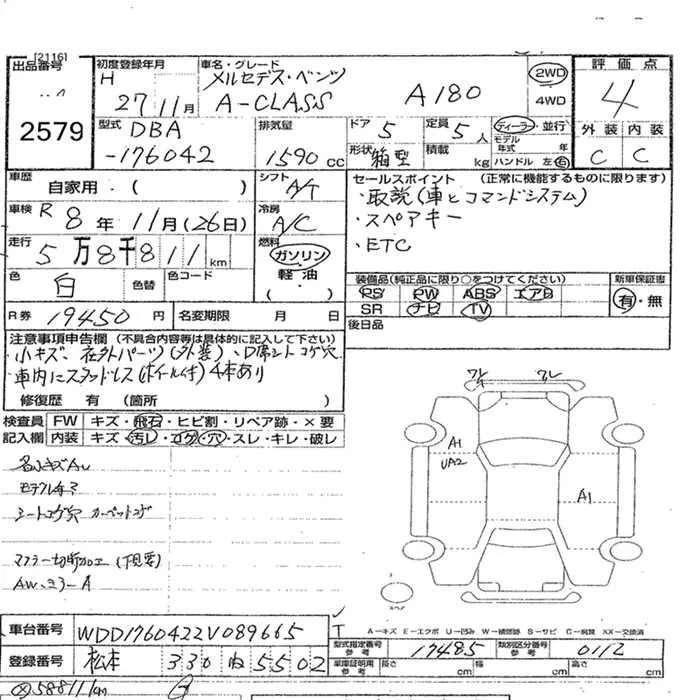 [2116]
出品番号
2579
初度登録年月
H 27年11月
車名・グレード
メルセデス・ベンツ
A-CLASS A180
2WD
4WD
評価点
4
型式
DBA
-176042
排気量
1590cc
ドア
5
定員
5人
形状
箱型
積載
kg
ディーラー・並行
モデル年式 年
ハンドル 左・右
外装 内装
C C
車歴
自家用・( )
シフト
A/T
車検 R 8年 11月(26日)
冷房
A/C
走行 5万8千811km
燃料
ガソリン
軽油
( )
色
白
色替
色コード
R券 19450円
名変期限 月 日
セールスポイント (正常に機能するものに限ります)
・取説(車とコマンドシステム)
・スペアキー
・ETC
装備品(純正品に限り○をつけてください)
PS PW ABS エアB
SR ナビ TV
新車保証書
有・無
後日品
注意事項申告欄 (不具合内容等は具体的に記入して下さい)
・小キズ、社外パーツ(外装)、D席シートコゲ穴
・車内にスタッドレス(ホイル付)4本あり
修復歴 有 (箇所 )
検査員記入欄
FW キズ・飛石・ヒビ割・リペア跡・×要
内装 キズ・汚レ・コゲ・穴・スレ・キレ・破レ
シートコゲ穴 カーペットコゲ
マフラー切断加工(下見要)
ワレ ワレ
A1
UA2
A1
スペア
A-キズ E-エクボ U-凹み W-補修跡 S-サビ C-腐蝕 XX-交換済
車台番号 WDD1760422V089665
登録番号 松本 330 ね 5502
型式指定番号 参考 17485
類別区分番号 参考 0112
車庫証明用 参考 長さ cm 幅 cm 高さ cm
58811km